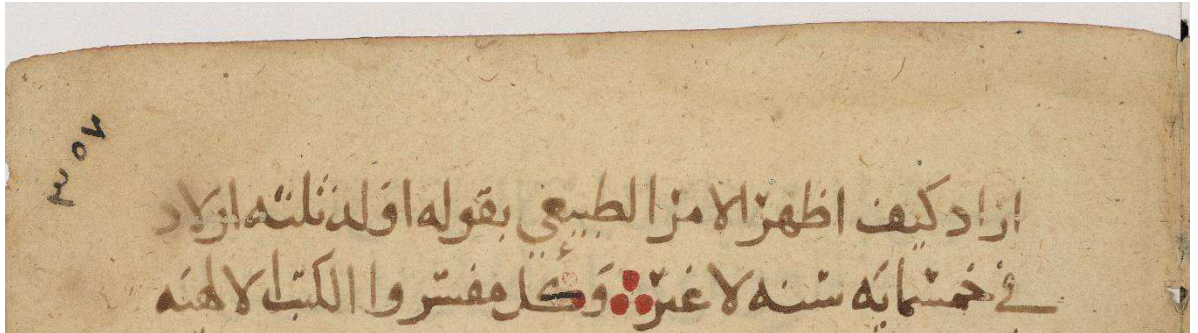 ٣٥٧
اراد كيف اظهر الامر الطبيعي بقوله اولد ثلثه اولاد
في خمسمايه سنه لا غير وكل مفسروا الكتب الالهيه